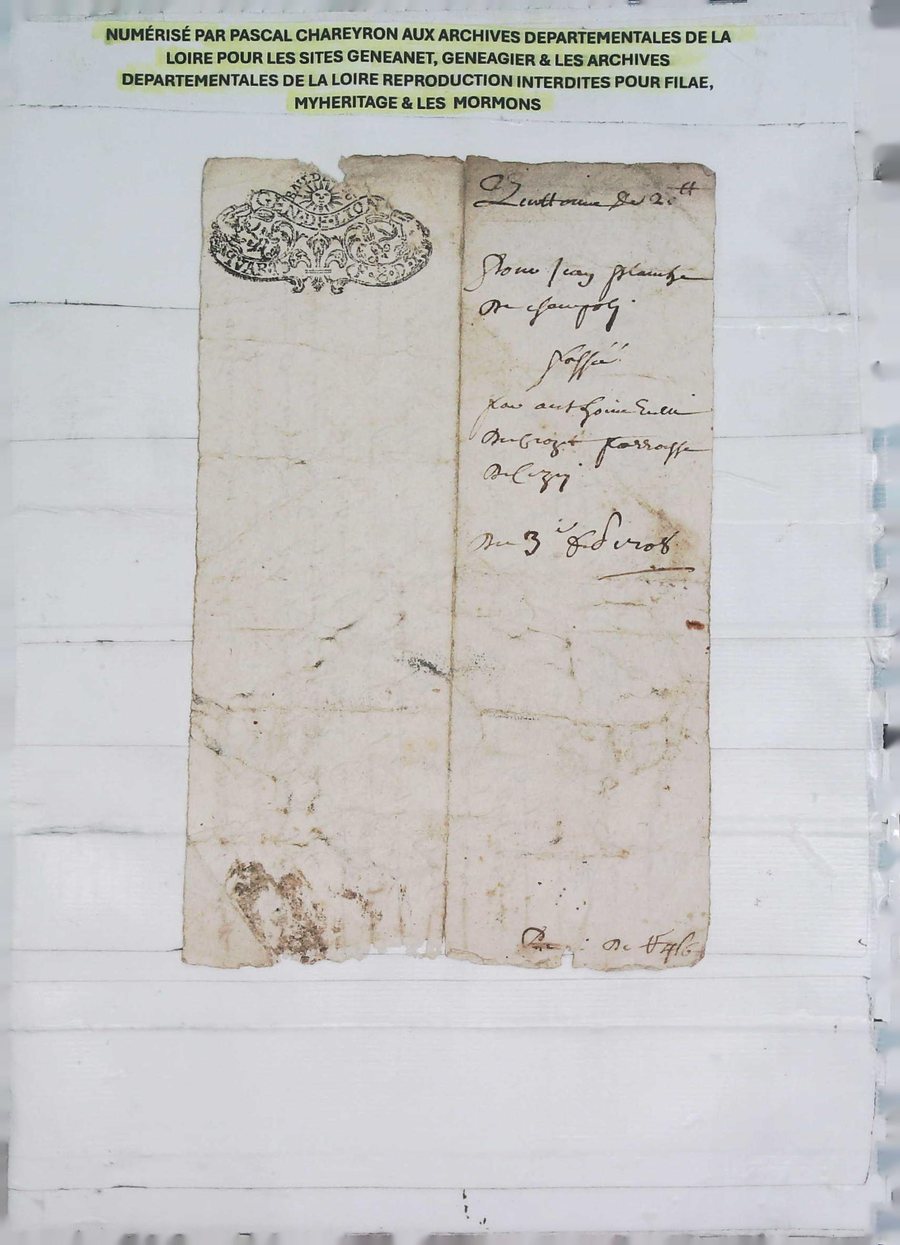 NUMÉRISÉ PAR PASCAL CHAREYRON AUX ARCHIVES DEPARTEMENTALES DE LA
LOIRE POUR LES SITES GENEANET, GENEAGIER & LES ARCHIVES
DEPARTEMENTALES DE LA LOIRE REPRODUCTION INTERDITES POUR FILAE,
MYHERITAGE & LES MORMONS
GEN·DE·LION
Quittance de
Pour Jean planche
De champoly
passée
par anthoine
Du crozet parroisse
De cezay
Du 3 1708
De